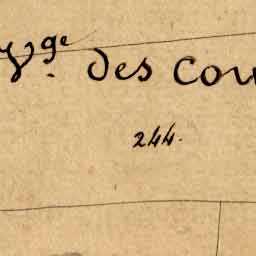 Vge. des Cou
244.